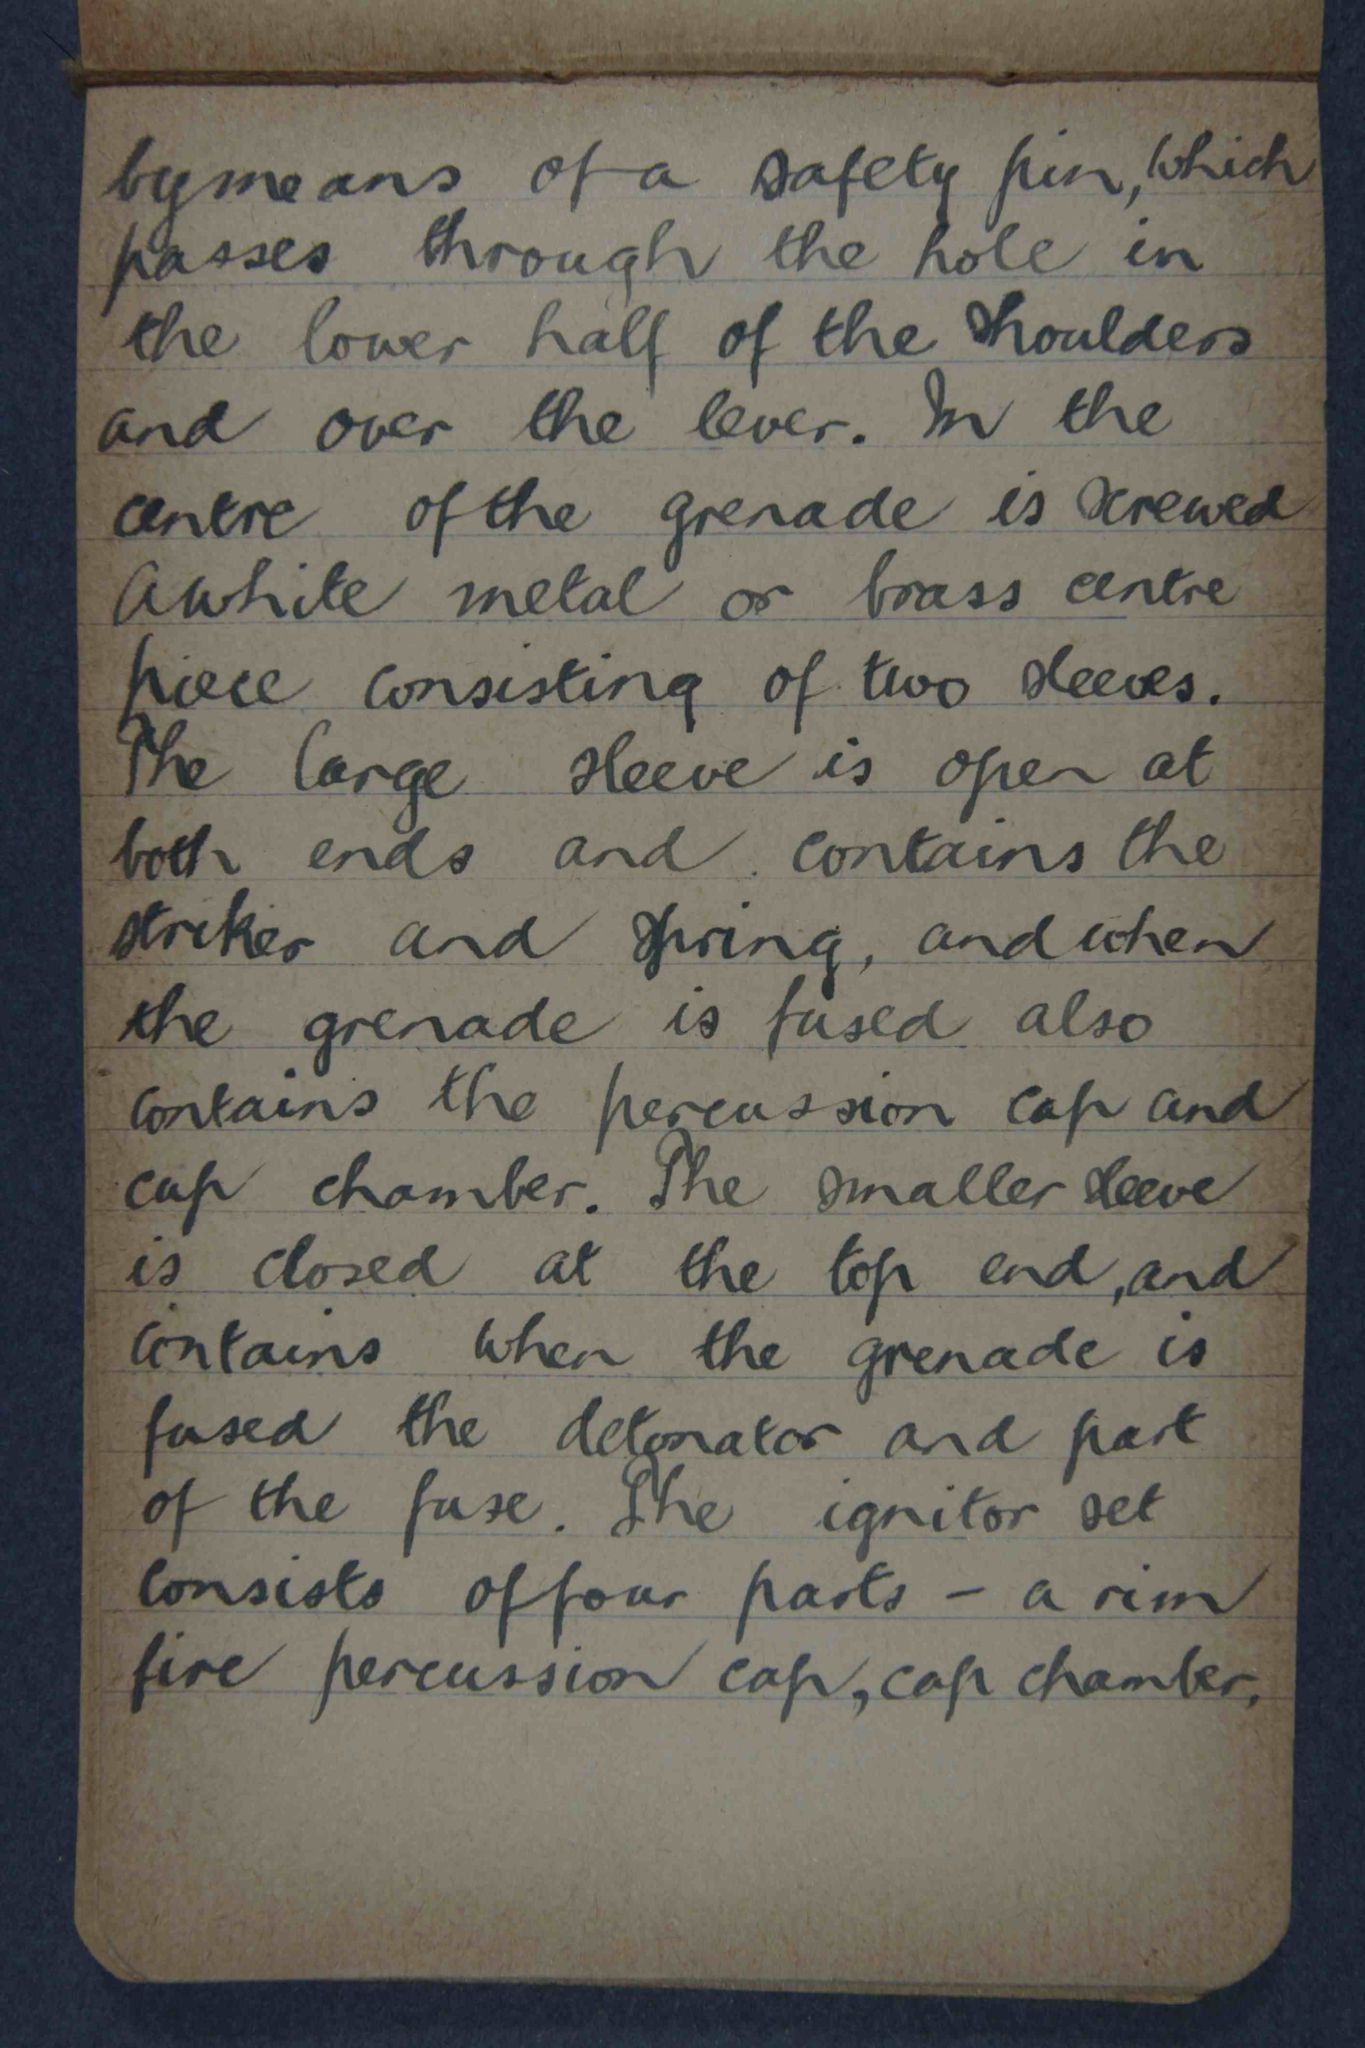 by means of a safety pin, which
passes through the hole in
the lower half of the shoulders
and over the lever. In the
centre of the grenade is screwed
A white metal or brass centre
piece consisting of two sleeves.
The large sleeve is open at
both ends and contains the
striker and spring, and when
the grenade is fused also
contains the percussion cap and
cap chamber. The smaller sleeve
is closed at the top end, and
contains when the grenade is
fused the detonator and part
of the fuse. The ignitor set
consists of four parts - a rim
fire percussion cap, cap chamber,